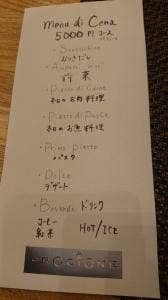 Menu di Cena
5000円コース
・Stuzzichino
おつきだし
・Antipasto
前菜
・Piatto di Carne
本日のお肉料理
・Piatto di Pesce
本日のお魚料理
・Primo piatto
パスタ
・Dolce
デザート
・Bevanda ドリンク
コーヒー
紅茶 HOT/ICE